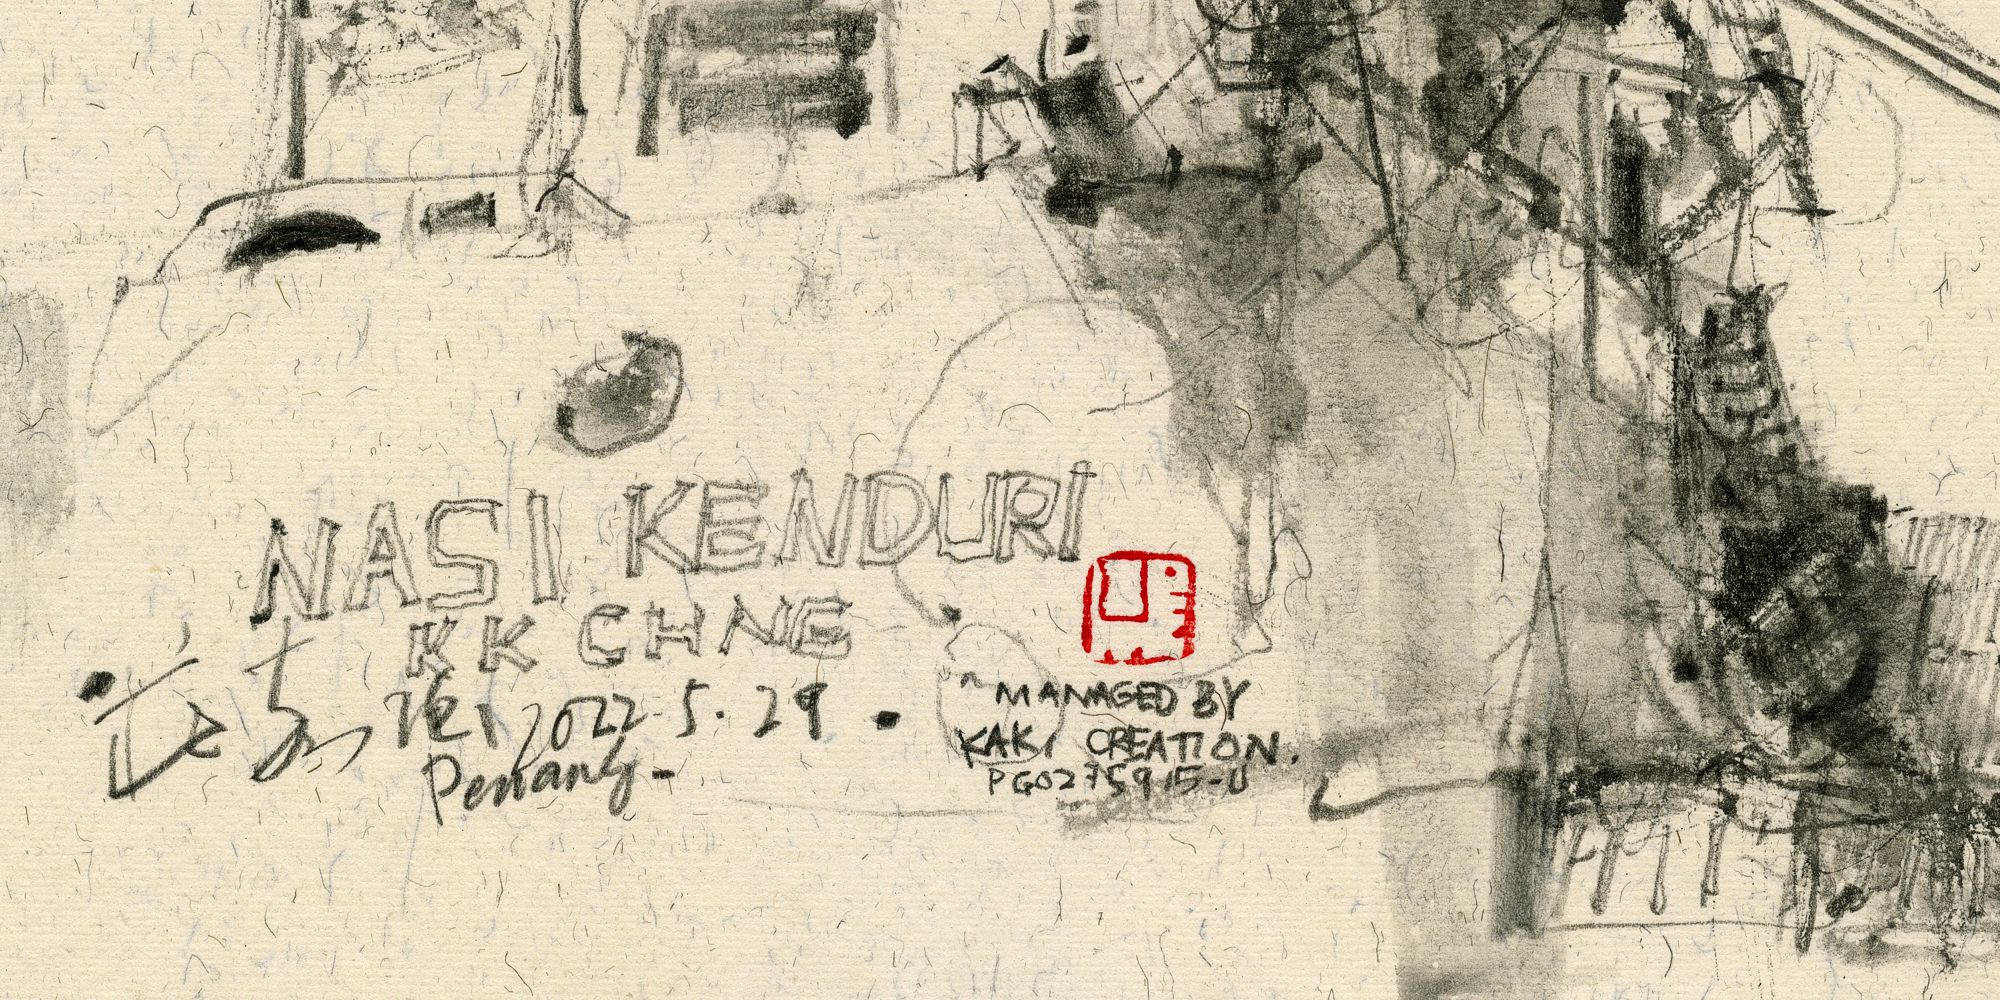 NASI KENDURI
KK CHNG
2022-5.29.
Penang-
MANAGED BY
KAKI CREATION.
PG0275915-U